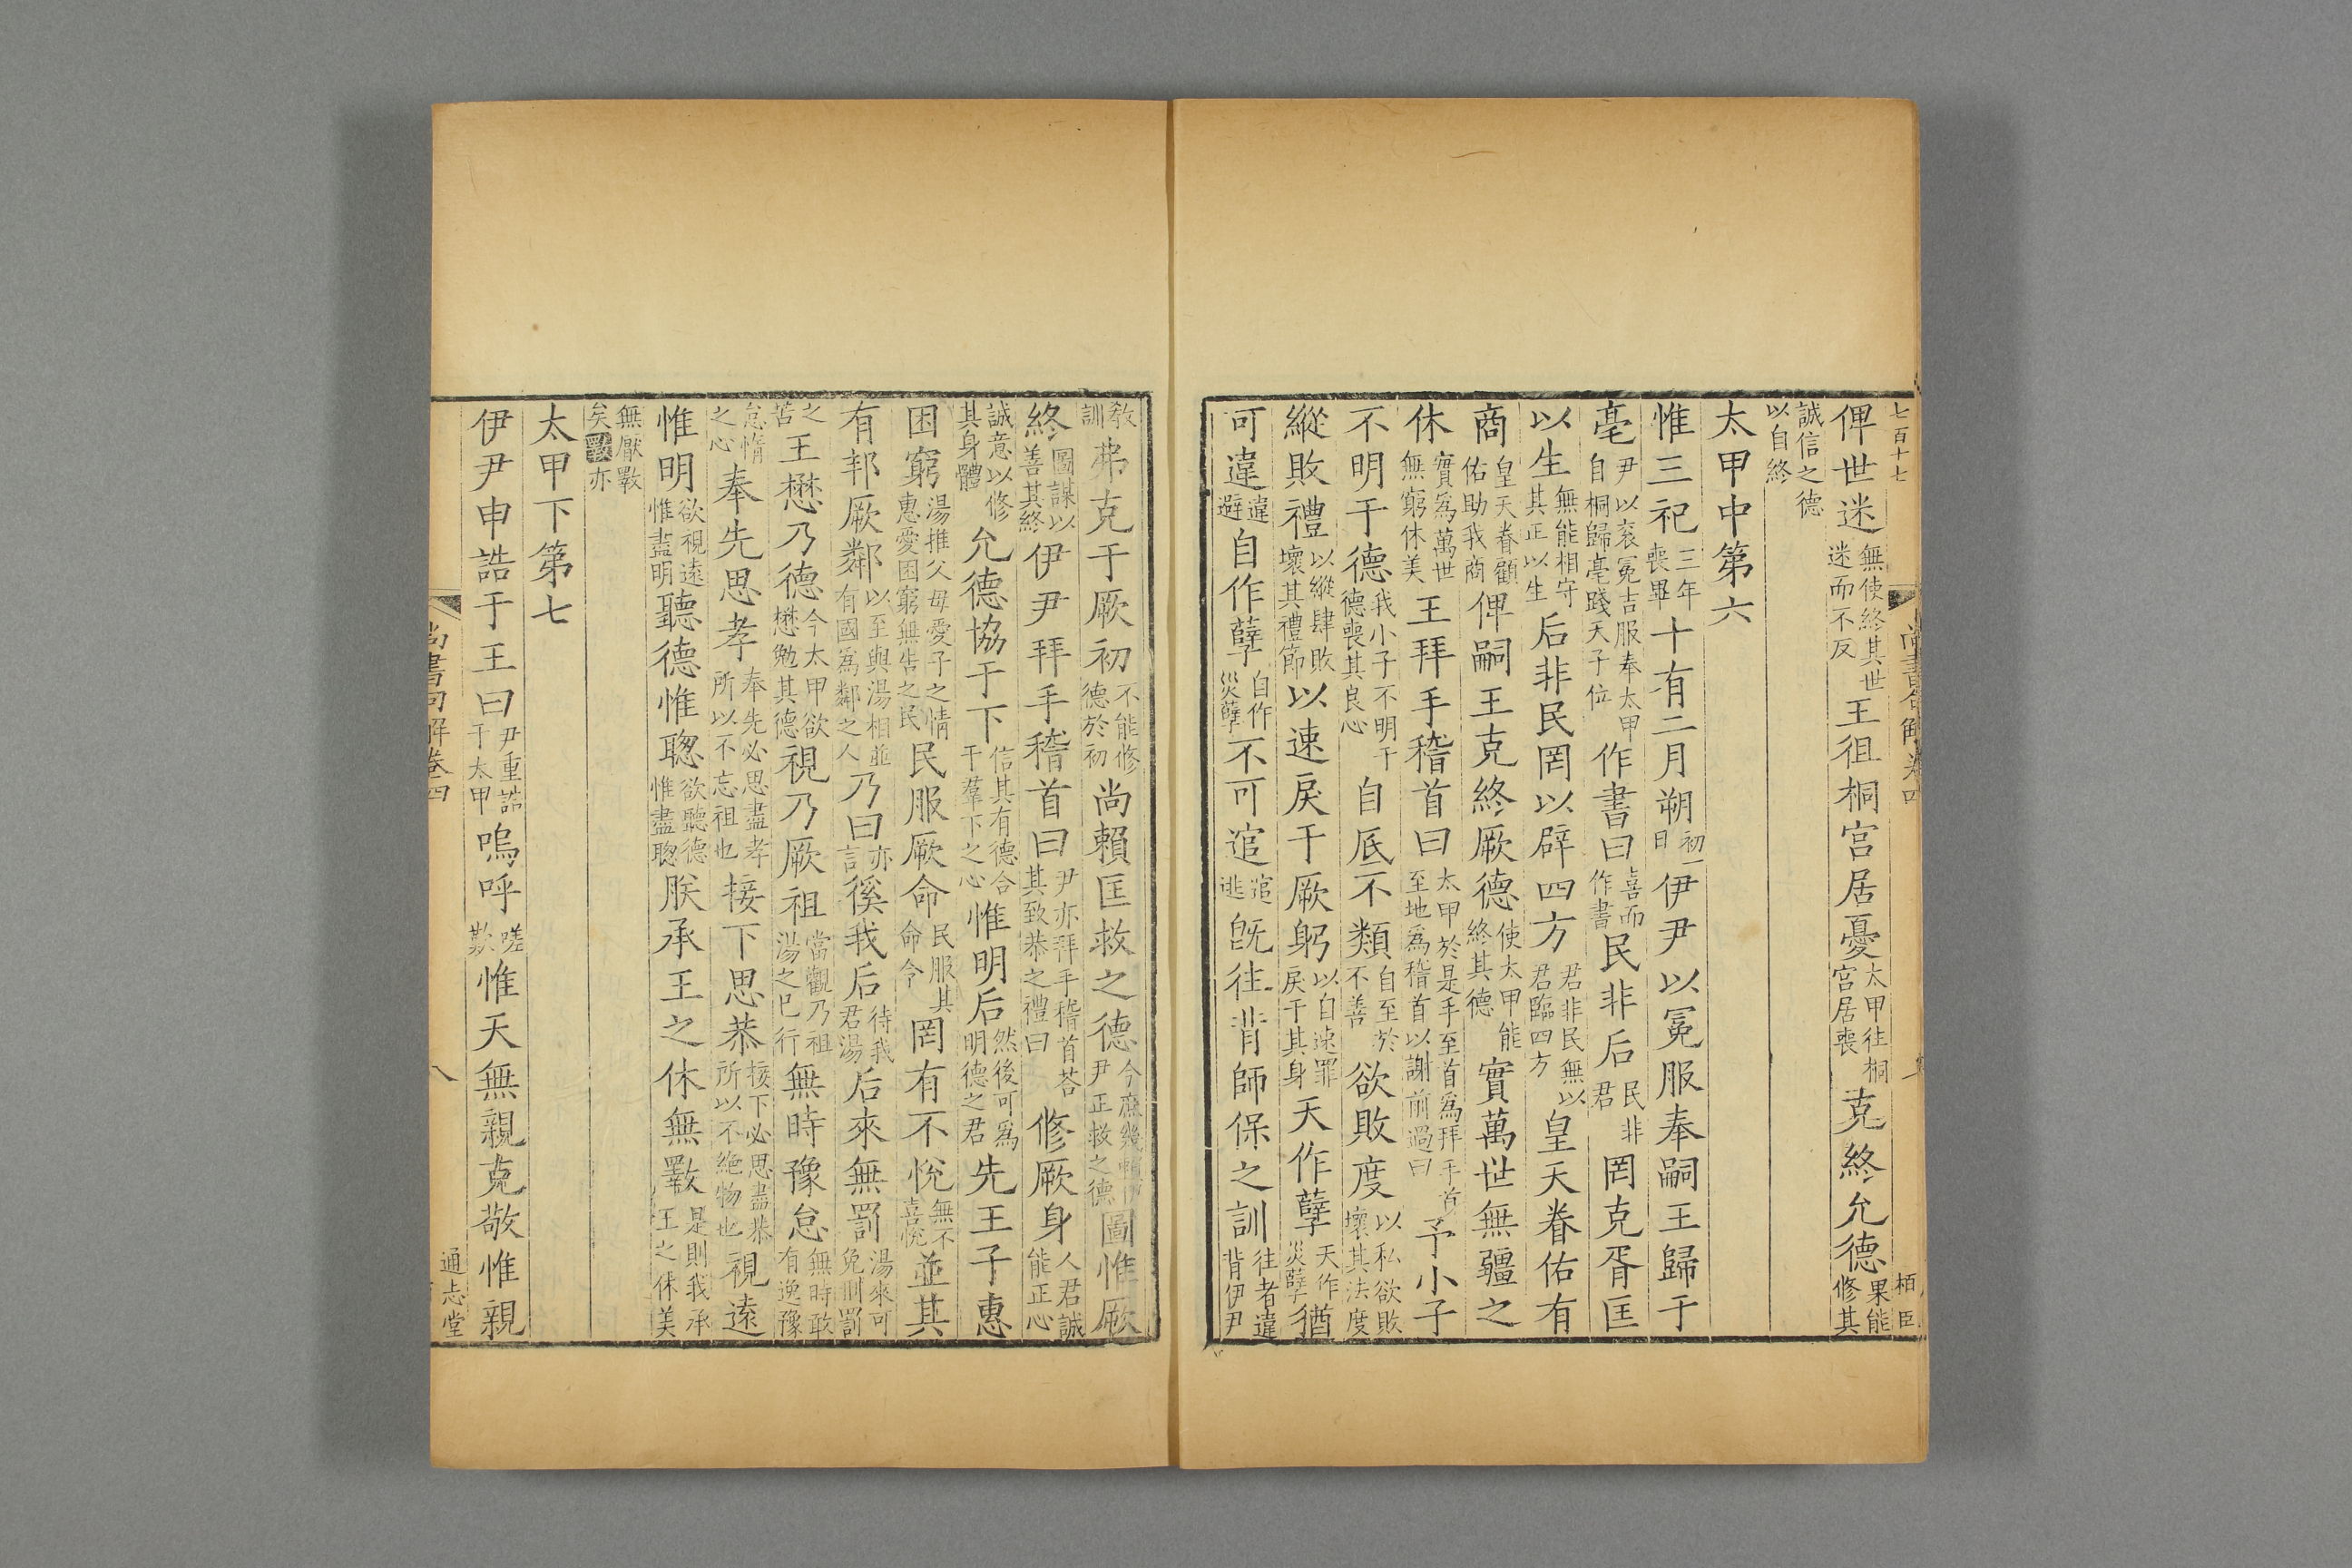 七百十七
尚書句解卷四
栢臣
俾世迷無使終其世迷而不反王徂桐宮居憂太甲往桐宮居喪克終允德果能修其
誠信之德以自終
太甲中第六
惟三祀三年喪畢十有二月朔初一日伊尹以冕服奉嗣王歸于
亳尹以袞冕吉服奉太甲自桐歸亳踐天子位作書曰喜而作書民非后民非君罔克胥匡
以生無能相守其正以生后非民罔以辟四方君非民無以君臨四方皇天眷佑有
商皇天眷顧佑助我商俾嗣王克終厥德使太甲能終其德實萬世無疆之
休實爲萬世無窮休美王拜手稽首曰太甲於是手至首爲拜手首至地爲稽首以謝前過曰予小子
不明于德我小子不明于德喪其良心自底不類自至於不善欲敗度以私欲敗壞其法度
縱敗禮以縱肆敗壞其禮節以速戾于厥躬以自速罪戾于其身天作孽天作災孽猶
可違違避自作孽自作災孽不可逭逭逃旣往背師保之訓往者違背伊尹
教訓弗克于厥初不能修德於初尚賴匡救之德今庶幾賴伊尹正救之德圖惟厥
終圖謀以善其終伊尹拜手稽首曰尹亦拜手稽首荅其致恭之禮曰修厥身人君誠能正心
誠意以修其身體允德協于下信其有德合于羣下之心惟明后然後可爲明德之君先王子惠
困窮湯推父母愛子之情惠愛困窮無告之民民服厥命民服其命令罔有不悅無不喜悅並其
有邦厥鄰以至與湯相並有國爲鄰之人乃曰亦言徯我后待我君湯后來無罰湯來可免刑罰
之苦王懋乃德今太甲欲懋勉其德視乃厥祖當觀乃祖湯之已行無時豫怠無時敢有逸豫
怠惰之心奉先思孝奉先必思盡孝所以不忘祖也接下思恭接下必思盡恭所以不絶物也視遠
惟明欲視遠惟盡明聽德惟聰欲聽德惟盡聰朕承王之休無斁是則我承王之休美
無厭斁矣斁亦
太甲下第七
伊尹申誥于王曰尹重誥于太甲嗚呼嗟歎惟天無親克敬惟親
尚書句解卷四
八
通志堂